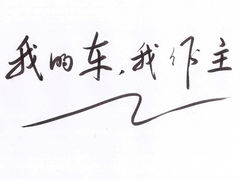 我的车,我作主